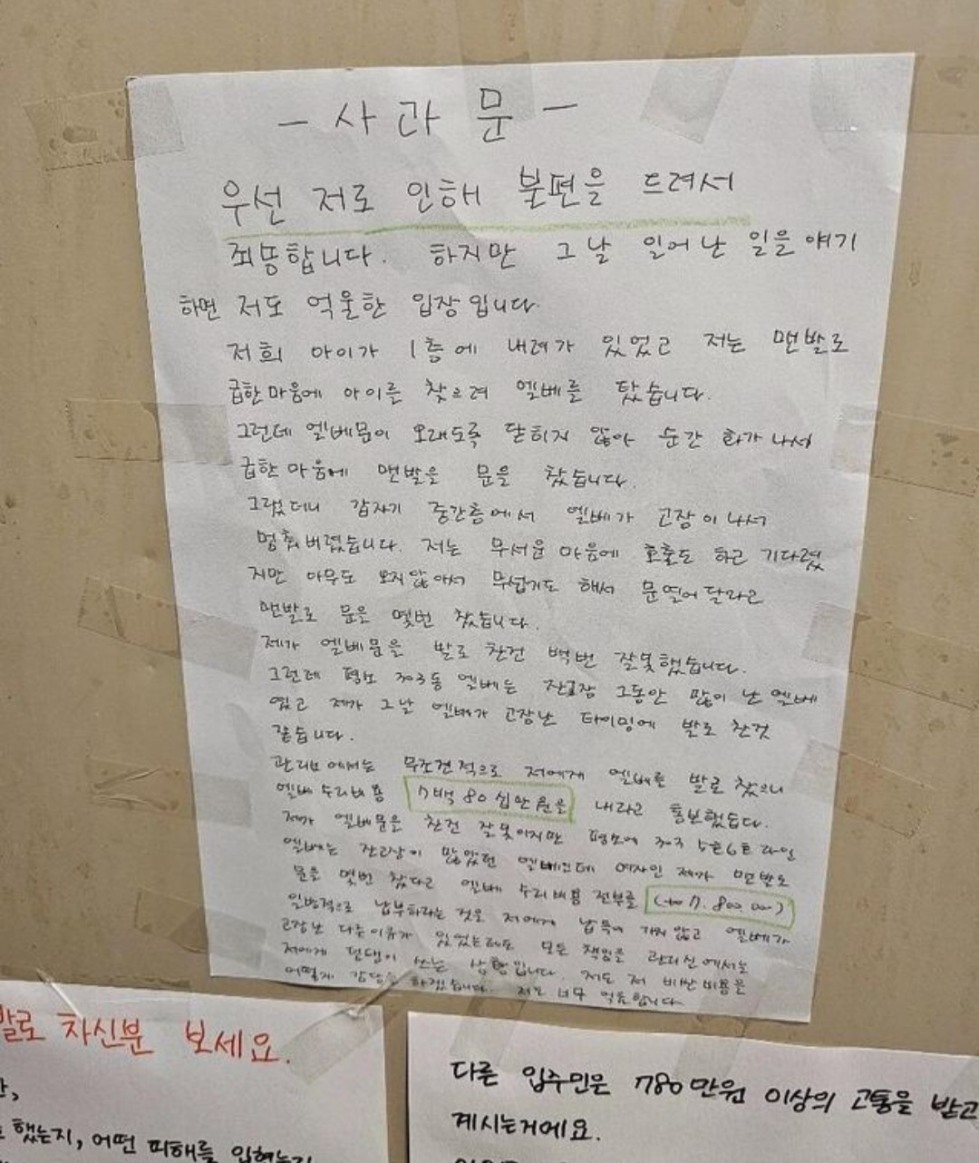 - 사 과 문 -
우선 저로 인해 불편을 드려서
죄송합니다. 하지만 그날 일어난 일을 얘기
하면 저도 억울한 입장입니다.
저희 아이가 1층에 내려가 있었고 저는 맨발로
급한마음에 아이를 찾으려 엘베를 탔습니다.
그런데 엘베문이 오래도록 닫히지 않아 순간 화가나서
급한 마음에 맨발을 문을 찼습니다.
그랬더니 갑자기 중간층에서 엘베가 고장이나서
멈춰버렸습니다. 저는 무서운 마음에 호출도 하고 기다렸
지만 아무도 오지않아서 무섭기도 해서 문열어달라고
맨발로 문을 몇번 찼습니다.
제가 엘베문을 발로 찬건 백번 잘못했습니다.
그런데 평소 303동 엘베는 잔고장 그동안 많이 난 엘베
였고 제가 그날 엘베가 고장난 타이밍에 발로 찬것
같습니다.
관리소에서는 무조건적으로 저에게 엘베를 발로 찼으니
엘베 수리비용 7백 80십만원을 내라고 통보했습다.
제가 엘베문을 찬건 잘못이지만 평소에 303 5호6호라인
엘베는 잔고장이 많았던 엘베인데 여자인 제가 맨발로
문을 몇번 찼다고 엘베 수리비용 전부를 7.800,000)
일방적으로 납부하라는 것은 저에게 납득이 가지 않고 엘베가
고장난 다른이유가 있었는데도 모든 책임을 관리실에서는
저에게 쓰는 상황입니다. 저도 저 비싼 비용을
어떻게 감당을 하겠습니다. 저도 너무 억울합니다.
발로 차신분 보세요.
했는지, 어떤 피해를
다른 입주민은 780만원 이상의 고통을 받고
계시는거에요.